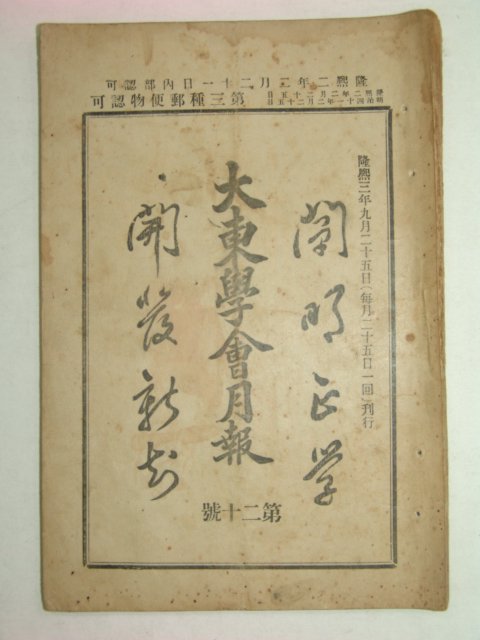 隆熙二年二月二十一日內部認可
隆熙二年二月二十五日
明治四十一年二月二十五日
第三種郵便物認可
隆熙三年九月二十五日(每月二十五日一回)刊行
闡明正學
大東學會月報
開發新知
第二十號